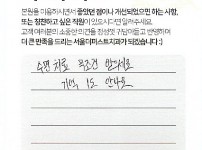 본원을 이용하시면서 좋았던 점이나 개선되었으면 하는 사항,
또는 칭찬하고 싶은 직원이 있으시다면 알려주세요.
고객 여러분의 소중한 의견을 경청하여 귀담아듣고 반영하여
더 큰 만족을 드리는 서울더퍼스트치과가 되겠습니다:)
수면 치료 무조건 받으세요
기억 1도 안나요